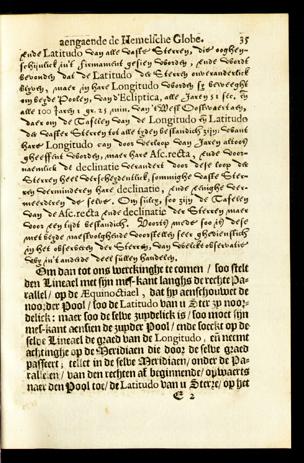 aengaende de Hemelsche Globe. 35
ende Latitudo van alle vaste Sterren, die ooghen-
schijnlick in't firmament gesien worden, ende wordt
bevonden dat de Latitudo der Sterren onveranderlick
blijven, maer in hare Longitudo worden sy beweeght
om beyde Poolen, van d'Ecliptica, alle Jaren 51 sec. en
alle 100 Jaren 1 gr. 25 min, van West Oostwaerts aen,
daer om de Tafelen van de Longitudo en Latitudo
der vaster Sterren tot alle tyden bestandich zijn, want
hare Longitudo van door verloop van Jaren altoos
gheeffent worden, maer hare Asc. recta, ende voor-
naemlick de declinatie verandert door dese loop der
Sterren heel verscheydentlick, sommighe vaste Ster-
ren verminderen hare declinatie, ende eenighe ver-
meerderen de selve. Om sulcx, soo zijn de Tafelen
van de Asc. recta ende declinatie der Sterren maer
voor een tijdt bestandich. Voorts mede soo is dese
met beyde navolghende voorstellen seer ghedienstich
in het observeren der Sterren, van welcke observatie
wy in't eynde deses sullen handelen.
Om dan tot ons werckinghe te comen / soo stelt
den Lineael met sijn mes-kant langhs de rechte Pa-
rallel / op de Æquinoctiael / dat hy aenschouwet de
noorder Pool / soo de Latitudo van u Ster zy noor-
delick: maer soo de selve zuydelick is / soo moet sijn
mes-kant aensien de zuyder Pool / ende soeckt op de
selve Lineael de graed van de Longitudo, en neemt
achtinghe op de Meridiaen die door de selve graed
passeert; tellet in de selve Meridiaen / onder de Pa-
rallelen / van den rechten af beginnende / opwaerts
naer den Pool toe / de Latitudo van u Sterre / op het
E 2